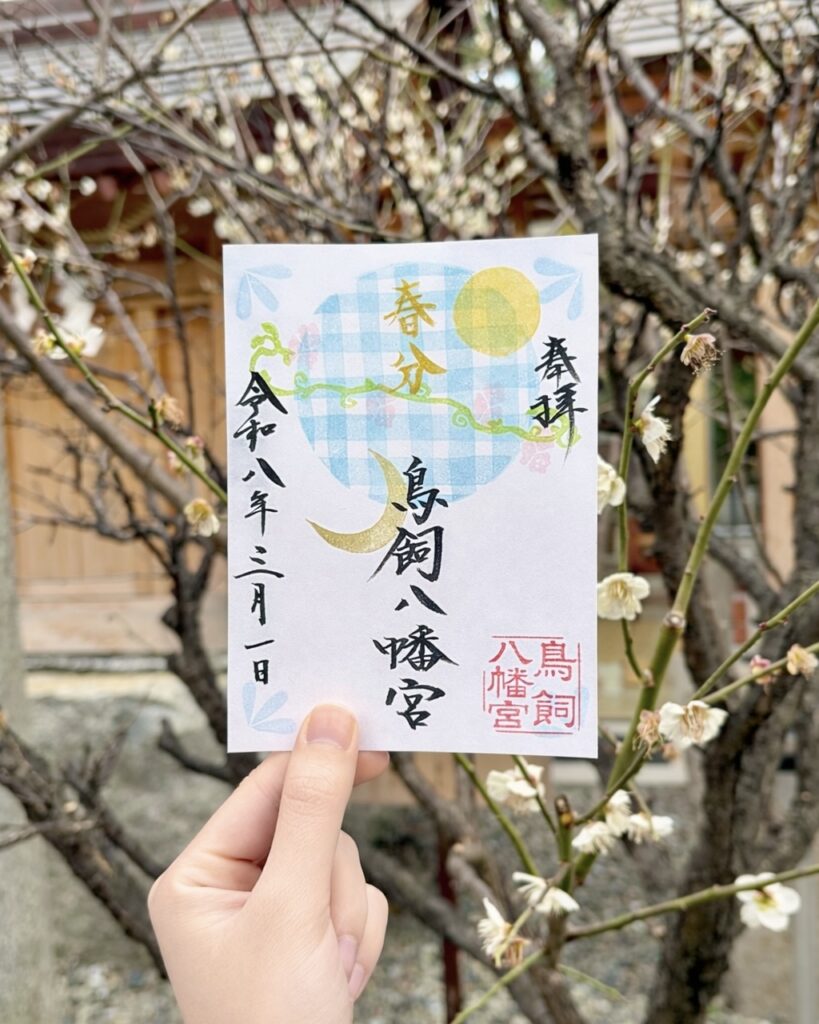 奉拝
春分
鳥飼八幡宮
令和八年三月一日
鳥飼
八幡宮